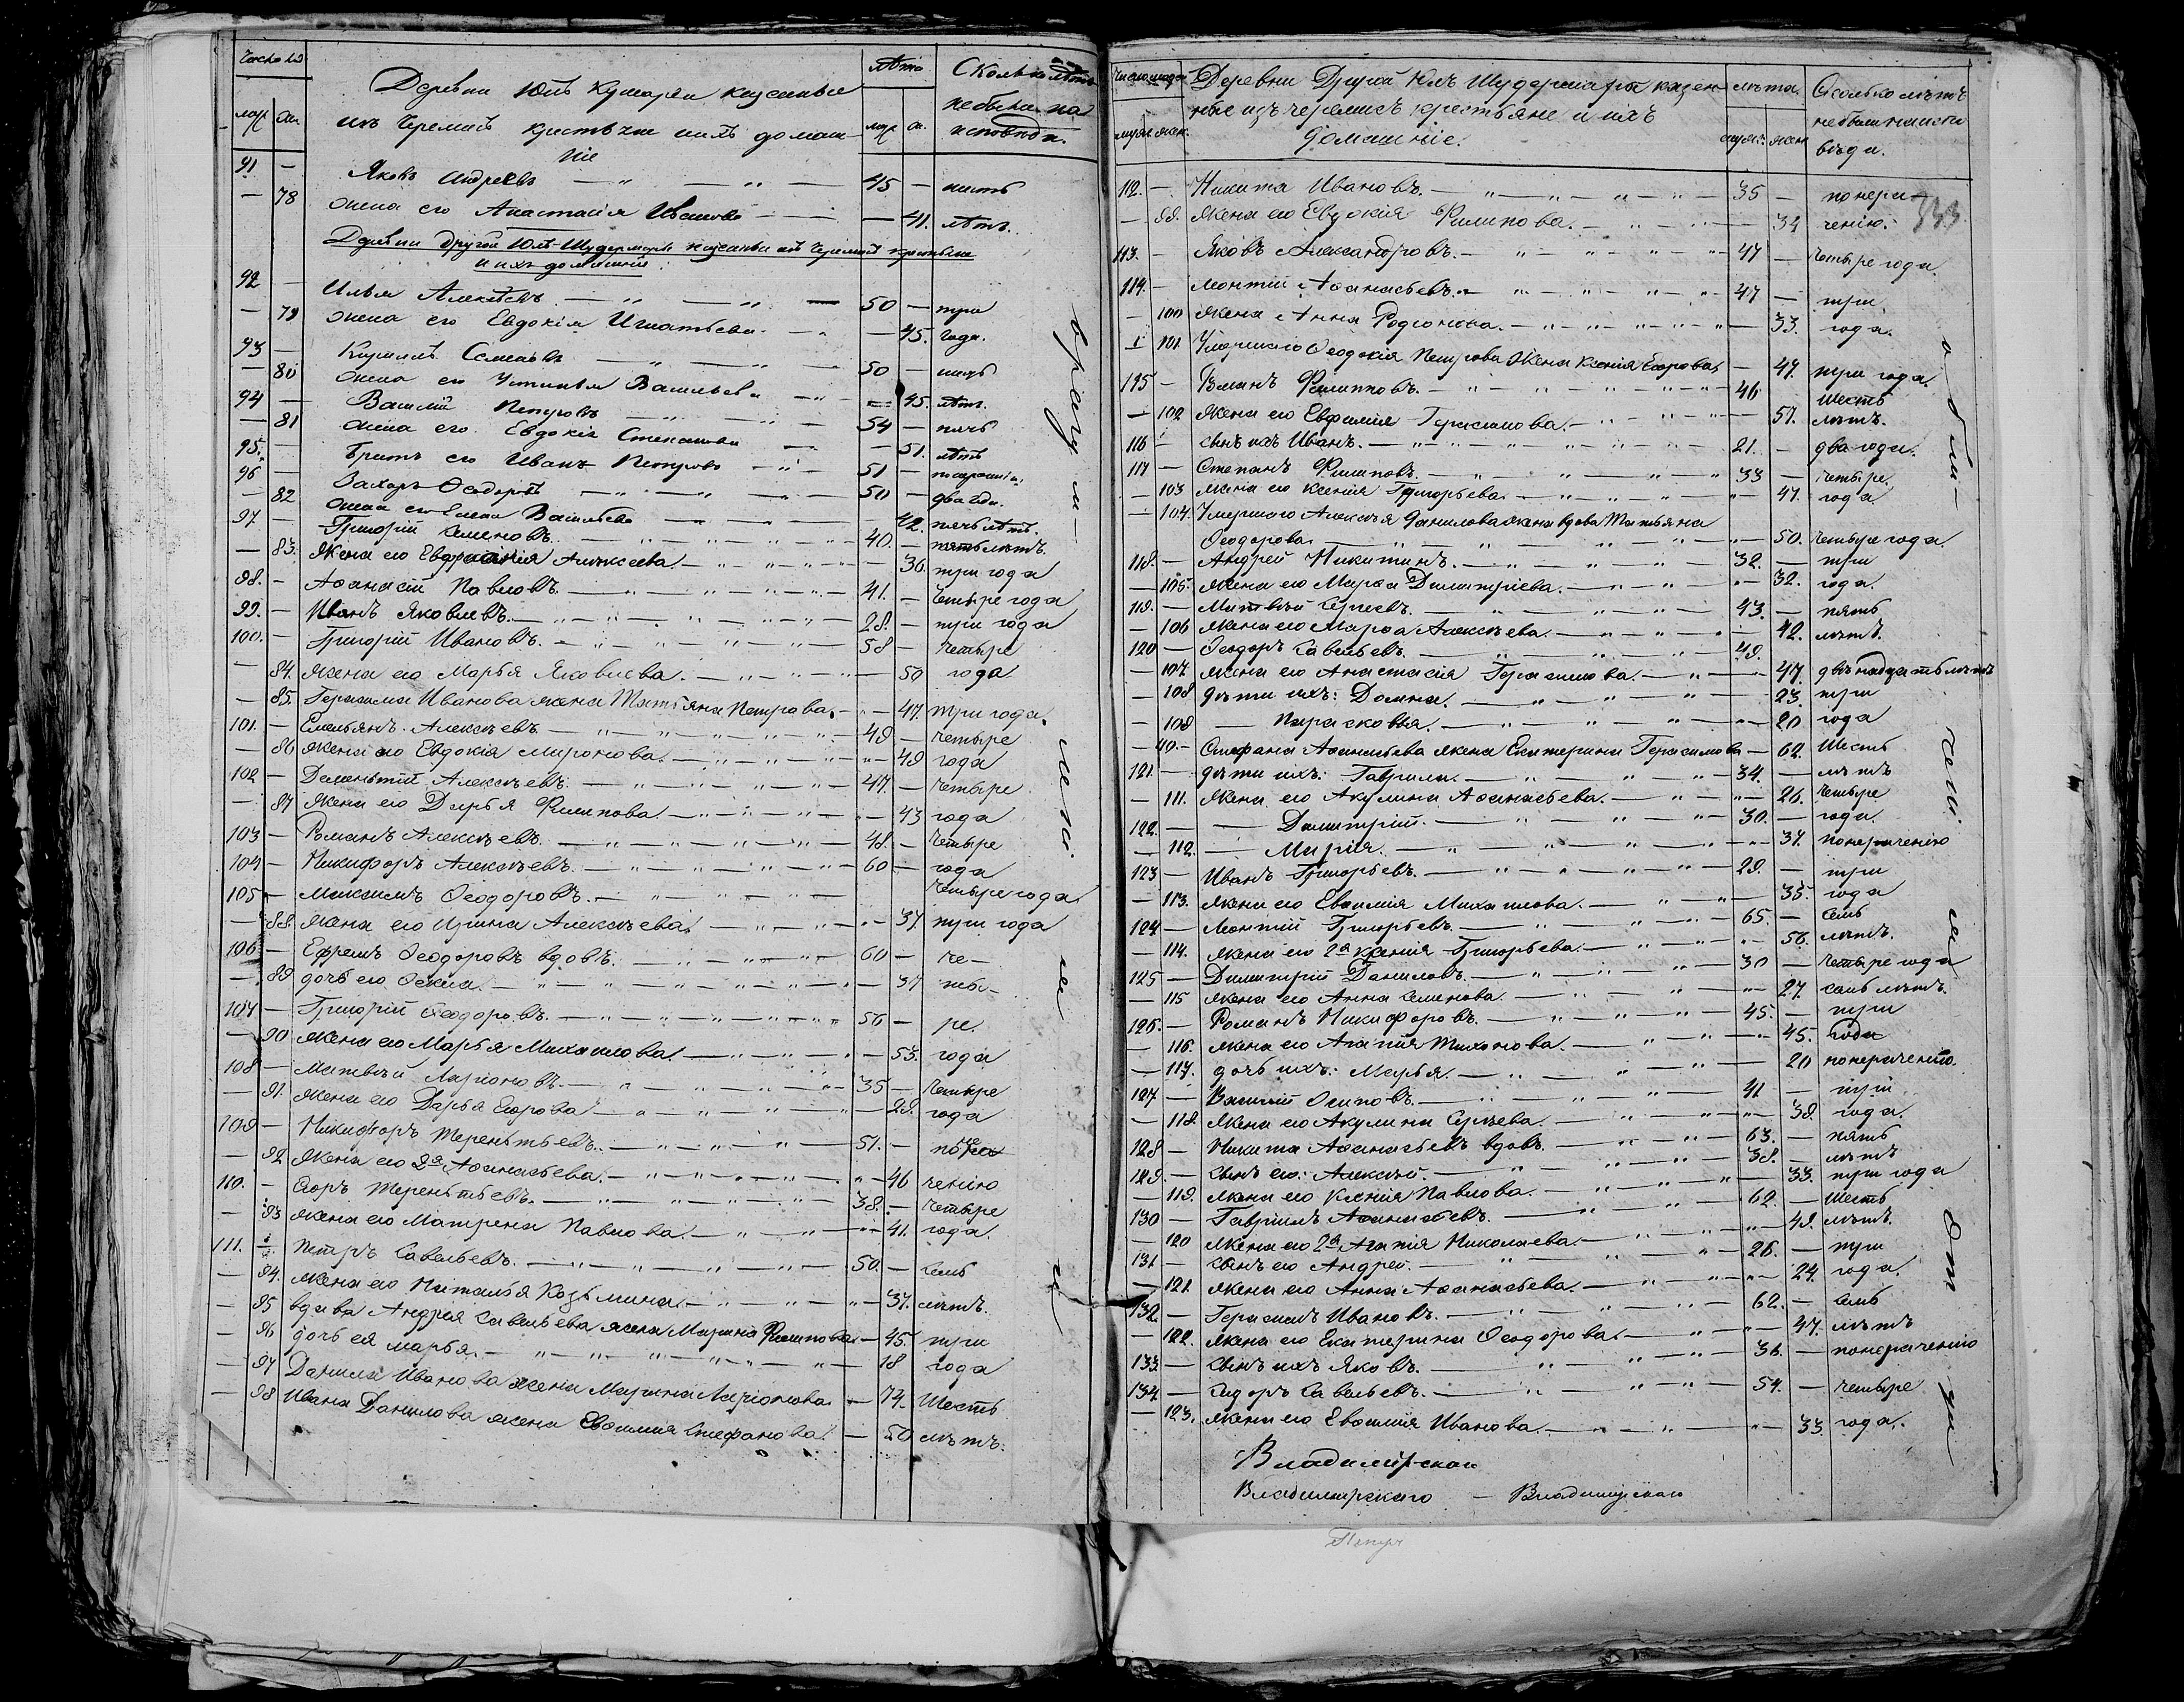 Число лю
муж. жен.
Деревни Юлъ Кумарьи казенные
изъ Черемисъ крестьяне и ихъ домаш
ніе
лѣта
муж. ж.
Сколько лѣтъ
не были на
исповѣди.
91 — Яковъ Андреевъ — " — " — 45 — шесть
— 78 жена его Анастасія Иванова — — 41. лѣтъ.
Деревни другой Юлъ-Шудермары казенные изъ Черемисъ крестьяне
и ихъ домашніе:
92 — Илья Алексѣевъ — " — " — 50 — три
— 79 жена его Евдокія Игнатьева — — 45. года.
93 — Кириллъ Семеновъ — " — " — 50 — шесть
— 80 жена его Устинья Васильева — — 45. лѣтъ.
94 — Василій Петровъ — " — 54 — пять
— 81 жена его Евдокія Степанова — 51. лѣтъ
95. Братъ его Иванъ Петровъ — " — 51 —
96 — Захаръ Ѳеодоровъ — " — " — 50 — два года.
— 82 жена его Елена Васильева — 42. пять лѣтъ.
97. — Григорій Семеновъ. — " — " — 40. — пять лѣтъ.
— 83. Жена его Евфросинія Алексѣева. — " — " — 36. три года
98. — Аѳанасій Павловъ. — " — " — 41. — Четыре года
99. — Иванъ Яковлевъ. — " — " — 28. — три года
100. — Григорій Ивановъ. — " — " — 58 — Четыре
— 84. Жена его Марья Яковлева. — " — " — 50 года
— 85. Герасима Иванова жена Татьяна Петрова. — 47. три года.
101. — Емельянъ Алексѣевъ. — " — " — 49 — Четыре
— 86 Жена его Евдокія Миронова. — " — " — 49 года
102 — Дементій Алексѣевъ. — " — " — 47. — Четыре
— 87 Жена его Дарья Филипова. — " — " — 43 года
103 — Романъ Алексѣевъ. — " — " — 48. — Четыре
104 — Никифоръ Алексѣевъ. — " — " — 60 — года
105 — Максимъ Ѳеодоровъ. — " — " — Четыре года.
— 88. Жена его Ирина Алексѣева. — " — " — 37. три года
106 — Ефремъ Ѳеодоровъ вдовъ. — " — " — 60 — че—
— 89 дочь его Ѳекла. — " — " — 37 ты—
107 — Григорій Ѳеодоровъ. — " — " — 56 — ре.
— 90 Жена его Марья Михаилова. — " — " — 53. года
108 — Матвѣй Ларіоновъ. — " — " — 35 — Четыре
— 91. Жена его Дарья Егорова — " — " — 29. года
109 — Никифоръ Терентьевъ. — " — " — 51. — по нера
— 92 Жена его 2я Аѳанасьева. — " — " — 46 ченію
110. — Егоръ Терентьевъ. — " — " — 38. — Четыре
— 93 Жена его Матрена Павлова. — " — " — 41. года.
111. Петръ Савельевъ. — " — " — 50. — семь
— 94. Жена его Наталья Козьмина. — " — " — 37. лѣтъ.
— 95 вдова Андрея Савельева жена Марина Филипова. — 45. три
— 96 дочь ея Марья. — " — " — 18 года
— 97 Данила Иванова жена Марина Ларіонова — 72. Шесть
— 98 Ивана Данилова жена Евфимія Стефанова. — 50 лѣтъ.
врагу м—
Число людей
муж. жен.
Деревни Другой Юлъ Шудермара казен
ные изъ черемисъ крестьяне и ихъ
домашніе.
лѣта.
муж. жен
Сколько лѣтъ
не были на испо
вѣди.
112. — Никита Ивановъ. — " — " — 35 — по нера—
— 99. Жена его Евдокія Филипова. — " — 32 ченію.
113. — Яковъ Александровъ. — " — " — 47 — Четыре года.
114. — Леонтій Аѳанасьевъ. — " — " — 47 — три
— 100 Жена Анна Родіонова. — " — " — 33. года.
101 Умершаго Ѳеодосія Петрова Жена Ксенія Егорова — 47. три года.
115 — Романъ Филипповъ. — " — " — 46 Шесть
— 102 Жена его Евфимія Герасимова. — " — 57. лѣтъ.
116 сынъ ихъ Иванъ. — " — " — 21. — два года.
117 — Степанъ Филиповъ. — " — " — 33 — Четыре
— 103 Жена его Ксенія Григорьева. — " — " — 47. года
— 104. Умершаго Алексѣя Данилова жена вдова Татьяна
Ѳеодорова. — " — " — 50. Четыре года.
118. — Андрей Никитинъ. — " — " — 32. — три
— 105. Жена его Марѳа Димитріева. — " — " — 32. года.
119. — Матвѣй Сергѣевъ. — " — " — 43. — пять
— 106 Жена его Марѳа Алексѣева. — " — " — 42. лѣтъ.
120 — Ѳеодоръ Савельевъ. — " — " — 49.
— 107 Жена его Анастасія Герасимова. — " — 47. двѣнадцать лѣтъ
— 108 дѣти ихъ: Домна. — " — " — 23. три
— 109 — Парасковья. — " — " — 20 года
— 110. — Стефана Аѳанасьева жена Екатерина Герасимова — 62. Шесть
121. — дѣти ихъ: Гаврила. — " — " — 34. — лѣтъ
— 111. Жена его Акулина Аѳанасьева. — " — 26. Четыре
122. — — Димитрій. — " — " — 30. — года.
— 112. — Марія. — " — " — 31. по нераченію
123 — Иванъ Григорьевъ. — " — " — 29. — три
— 113. Жена его Евфимія Михаилова. — " — 35. года
124 — Леонтій Григорьевъ. — " — " — 65. — семь
— 114. Жена его 2я Ксенія Григорьева. — " — 56. лѣтъ.
125 — Димитрій Даниловъ. — " — " — 30 — Четыре года
— 115 Жена его Анна Семенова. — " — " — 27. семь лѣтъ.
126. — Романъ Никифоровъ. — " — " — 45. — три
— 116. Жена его Агапія Тихонова. — " — " — 45. года
— 117. дочь ихъ: Марья. — " — " — 20 по нераченію.
127 — Василій Осиповъ. — " — " — 41 — три
— 118. Жена его Акулина Сергѣева. — " — " — 39. года.
128 — Никита Аѳанасьевъ вдовъ. — " — " — 63. — пять
129 — сынъ его: Алексѣй. — " — " — 38. — лѣтъ
— 119. Жена его Ксенія Павлова. — " — " — 33. три года
130 — Гавріилъ Аѳанасьевъ. — " — " — 62. — Шесть
— 120 Жена его 2я Агапія Николаева. — " — 49. лѣтъ.
131 — сынъ его Андрей. — " — " — 26. — три
— 121. Жена его Анна Аѳанасьева. — " — " — 24. года.
132 — Герасимъ Ивановъ. — " — " — 62. — семь
— 122. Жена его Екатерина Ѳеодорова. — " — 47. лѣтъ
133. — сынъ ихъ Яковъ. — " — " — 36. — по нераченію
134 — Сидоръ Савельевъ. — " — " — 54. — Четыре
— 123. Жена его Евфимія Иванова. — " — " — 33. года.
Владимірская
Владимирскаго — Владимирскаго
Петръ